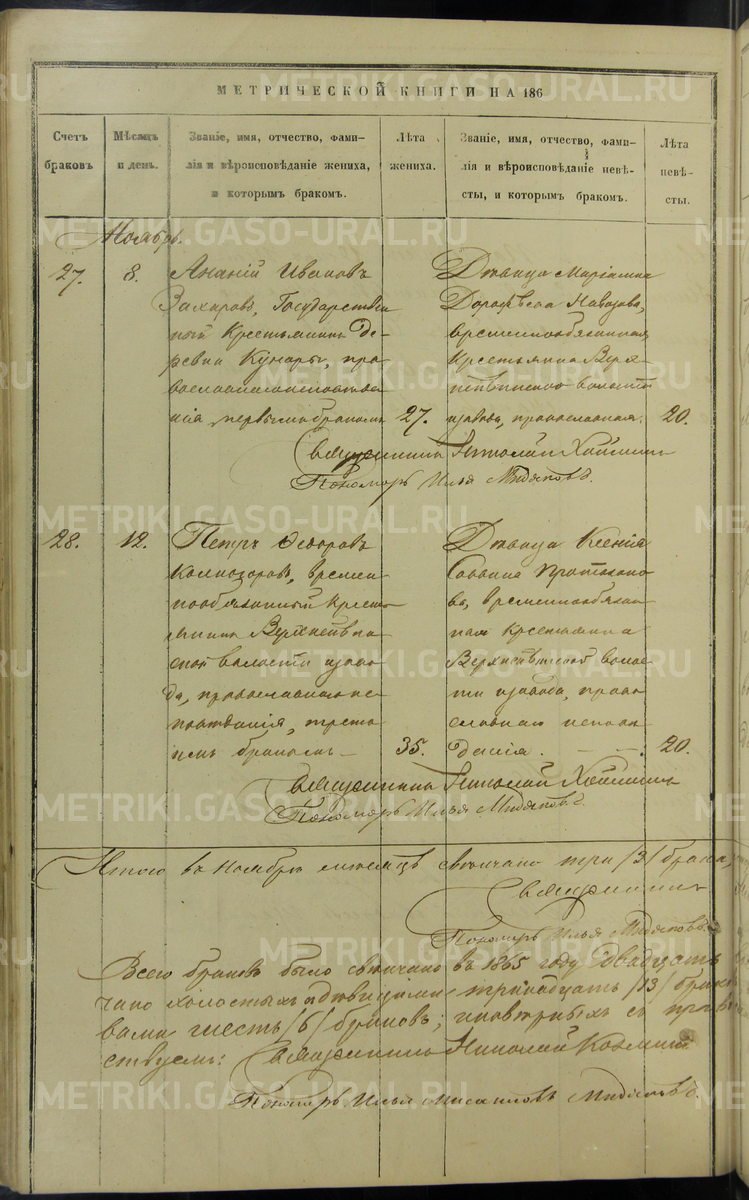 МЕТРИЧЕСКОЙ КНИГИ НА 186
Счетъ браковъ.
Мѣсяцъ и день.
Званіе, имя, отчество, фами-
лія и вѣроисповѣданіе жениха,
и которымъ бракомъ.
Лѣта
жениха.
Званіе, имя, отчество, фами-
лія и вѣроисповѣданіе невѣ-
сты, и которымъ бракомъ.
Лѣта
невѣ-
сты.
Ноябрь.
27.
8.
Ананій Ивановъ
Захаровъ, Государствен
ный Крестьянинъ Де-
ревни Кунары, пра
вославнаго исповѣда
нія, первымъ бракомъ
27.
Дѣвица Маріамна
Дорофѣева
временнообязанная
Крестьянка Верх
нейвинской волости
завода, православная.
20.
Священникъ Николай
Пономарь Илья
28.
12.
Петръ Ѳедоровъ
времен
нообязанный Кресть
янинъ Верхнейвин
ской волости заво
да, православнаго ис
повѣданія, треть
имъ бракомъ
35.
Дѣвица Ксенія
Саввина Протасо
ва, временнообязан
ная крестьянка
Верхнейвинской волос
ти завода, право
славнаго исповѣ
данія.
20.
Священникъ Николай
Пономарь Илья
Итого въ Ноябрѣ мѣсяцѣ свѣнчано три /3/ брака,
Священникъ
Пономарь Илья
Всего браковъ было свѣнчано въ 1865 году двадцать
чано холостыхъ съ дѣвицами тринадцать /13/ брако
вами шесть /6/ браковъ; иновѣрныхъ съ прав
ствуемъ: Священникъ Николай
Пономарь Илья
METRIKI.GASO-URAL.RU